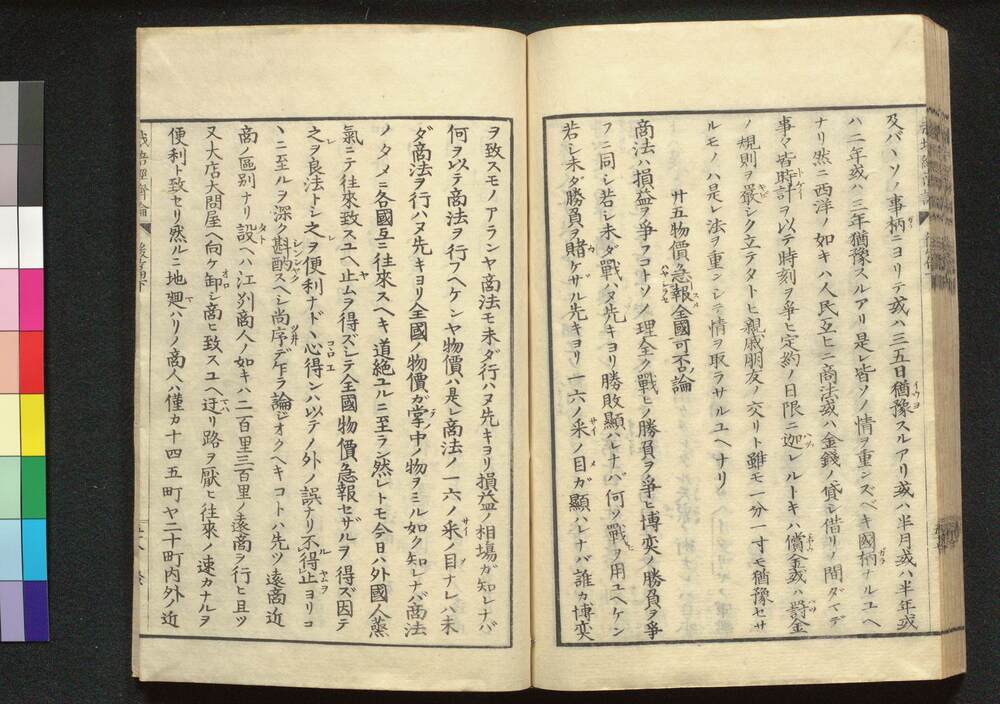 及バヽソノ事柄ニヨリテ或ハ三五日猶豫スルアリ或ハ半月或ハ半年或
ハ二年或ハ三年猶豫スルアリ是レ皆ソノ情ヲ重ンズベキ國柄ナルユヘ
ナリ然ニ西洋ノ如キハ人民互ヒニ商法或ハ金錢ノ貸シ借リノ間ダマデ
事々皆時計ヲ以テ時刻ヲ爭ヒ定約ノ日限ニ迦レルトキハ償金或ハ罸金
ノ規則ヲ嚴シク立テタトヒ親戚朋友ノ交リト雖モ一分一寸モ猶豫セサ
ルモノハ是レ法ヲ重ンシテ情ヲ取ラサルユヘナリ
廿五物價急報全國可否ノ論
商法ハ損益ヲ爭フコトソノ理全ク戰ヒノ勝負ヲ爭ヒ博奕ノ勝負ヲ爭
フニ同シ若シ未ダ戰ハヌ先キヨリ勝敗顯ハレナバ何ソ戰ヲ用ユヘケン
若シ未ダ勝負ヲ賭ケザル先キヨリ一六ノ采ノ目ガ顯ハレナバ誰カ博奕
ヲ致スモノアランヤ商法モ未ダ行ハヌ先キヨリ損益ノ相場ガ知レナバ
何ヲ以テ商法ヲ行フヘケンヤ物價ハ是レ商法ノ一六ノ采ノ目ナレハ未
ダ商法ヲ行ハヌ先キヨリ全國ノ物價ガ掌中ノ物ヲミル如ク知レナバ商法
ノタメニ各國互ニ往來スヘキ道絶ユルニ至ラン然レトモ今日ハ外國人蒸
氣ニテ往來致スユヘ止ムヲ得ズシテ全國物價急報セザルヲ得ズ因テ
之ヲ良法トシ之ヲ便利ナドヽ心得ンハ以テノ外ノ誤ナリ不得止ヨリコ
ヽニ至ルヲ深ク斟酌スヘシ尚序デ乍ラ論シオクヘキコトハ先ツ遠商近
商ノ區別ナリ設ヘハ江刕商人ノ如キハ二百里三百里ノ遠商ヲ行ヒ且ツ
又大店大問屋ヘ向ケ卸シ商ヒ致スユヘ迂リ路ヲ厭ヒ往來ノ速カナルヲ
便利ト致セリ然ルニ地廻ハリノ商人ハ僅カ十四五町ヤ二十町内外ノ近